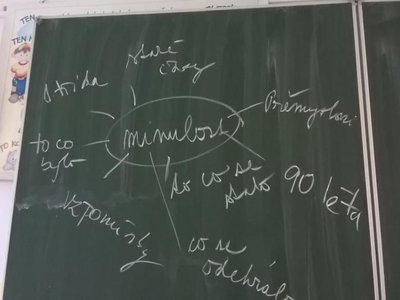 staré
časy
střída
Přemyslovci
minulost
to co
bylo
to co se
stalo
90 léta
vzpomínky
co se
odehrálo
TEN